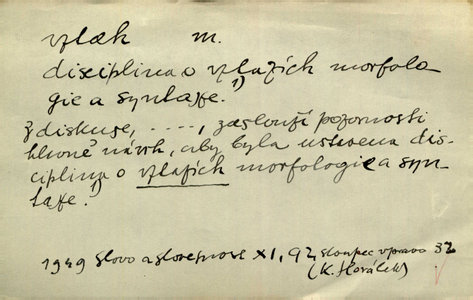 vztah m.
disciplina o vztazích morfolo
gie a syntaxe.¹)
Z diskuse, ....., zaslouží pozornosti
hlavně návrh, aby byla ustavena dis-
ciplina o vztazích morfologie a syn-
taxe.¹)
1949 Slovo a slovesnost XI, 92, sloupec vpravo 32
(K. Horálek)